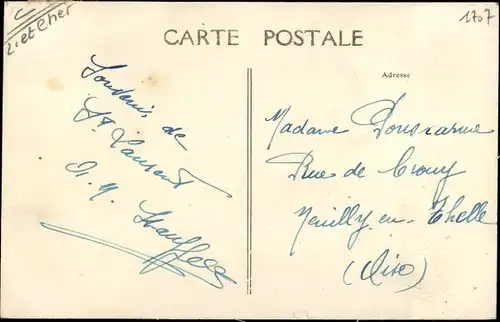 L. et Cher
1707
CARTE POSTALE
Adresse
Souvenir de
St. Laurent
Madame
Rue de Crouy
Neuilly en Thelle
(Oise)